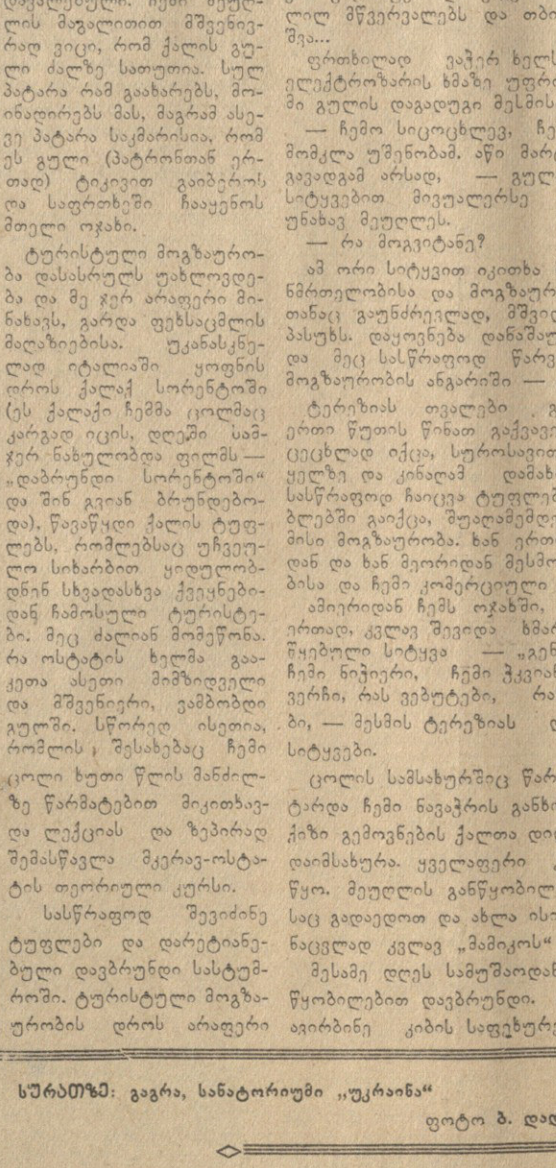 ლის მაგალითით მშვენივ-
რად ვიცი, რომ ქალის გუ-
ლი ძალზე სათუთია. სულ
პატარა რამ გაახარებს, მო-
ინადირებს მას, მაგრამ ასე-
ვე პატარა საკმარისია, რომ
ეს გული (პატრონთან ერ-
თად) ტიკივით გაიბეროს
და საფრთხეში ჩააყენოს
მთელი ოჯახი.
ტურისტული მოგზაურო-
ბა დასასრულს უახლოვდე-
ბა და მე ჯერ არაფერი მი-
ნახავს, გარდა ფეხსაცმლის
მაღაზიებისა. უკანასკნე-
ლად იტალიაში ყოფნის
დროს ქალაქ სორენტოში
(ეს ქალაქი ჩემმა ცოლმაც
კარგად იცის, დღეში სამ-
ჯერ ნახულობდა ფილმს —
„დაბრუნდი სორენტოში“
და შინ გვიან ბრუნდებო-
და), წავაწყდი ქალის ტუფ-
ლებს, რომლებსაც უჩვეუ-
ლო სიხარბით ყიდულობ-
დნენ სხვადასხვა ქვეყნები-
დან ჩამოსული ტურისტე-
ბი. მეც ძალიან მომეწონა.
რა ოსტატის ხელმა გაა-
კეთა ასეთი მიმზიდველი
და მშვენიერი, ვამბობდი
გულში. სწორედ ისეთია,
რომლის შესახებაც ჩემი
ცოლი ხუთი წლის მანძილ-
ზე წარმატებით მიკითხავ-
და ლექციას და ზეპირად
შემასწავლა მკერავ-ოსტა-
ტის თეორიული კურსი.
სასწრაფოდ შევიძინე
ტუფლები და დარეტიანე-
ბული დავბრუნდი სასტუმ-
როში. ტურისტული მოგზა-
ურობის დროს არაფერი
ლილ მწვერვალებს და
შვა...
ფრთხილად ვაჭერ
ელექტროზარის ხმაზე
ში გულის დაგადუგი მესმის
— ჩემო სიცოცხლევ,
მომკლა უშენობამ. აწი
გავადგამ არსად, —
სიტყვებით მივუალერსე
უნახავ მეუღლეს.
— რა მოგვიტანე?
ამ ორი სიტყვით იკითხა
ნმრთელობისა და
თანაც გაუნძრევლად,
პასუხს. დაყოვნება
და მეც სასწრაფოდ
მოგზაურობის ანგარიში —
ტერეზიას თვალები
ერთი წუთის წინათ
ცეცხლად იქცა,
ყელზე და კინაღამ
სასწრაფოდ ჩაიცვა
ბლებში გაიქცა,
მისი მოგზაურობა. ხან
დან და ხან მეორიდან
ბისა და ჩემი კომერციული
ამიერიდან ჩემს ოჯახში,
ერთად, კვლავ შევიდა
წყებული სიტყვა —
ჩემი ნიჭიერი, ჩემი
ვერჩი, რას ვებუტები,
ბი, — მესმის ტერეზიას
სიტყვები.
ცოლის სამსახურშიც
ტარდა ჩემი ნავაჭრის
ქიზი გემოვნების ქალთა
დაიმსახურა. ყველაფერი
წყო. მეუღლის
საც გადაედოთ და ახლა
ნაცვლად კვლავ „მამიკოს“
მესამე დღეს
წყობილებით დავბრუნდი.
ავირბინე კიბის
სურათზე: გაგრა, სანატორიუმი „უკრაინა“
ფოტო ბ.